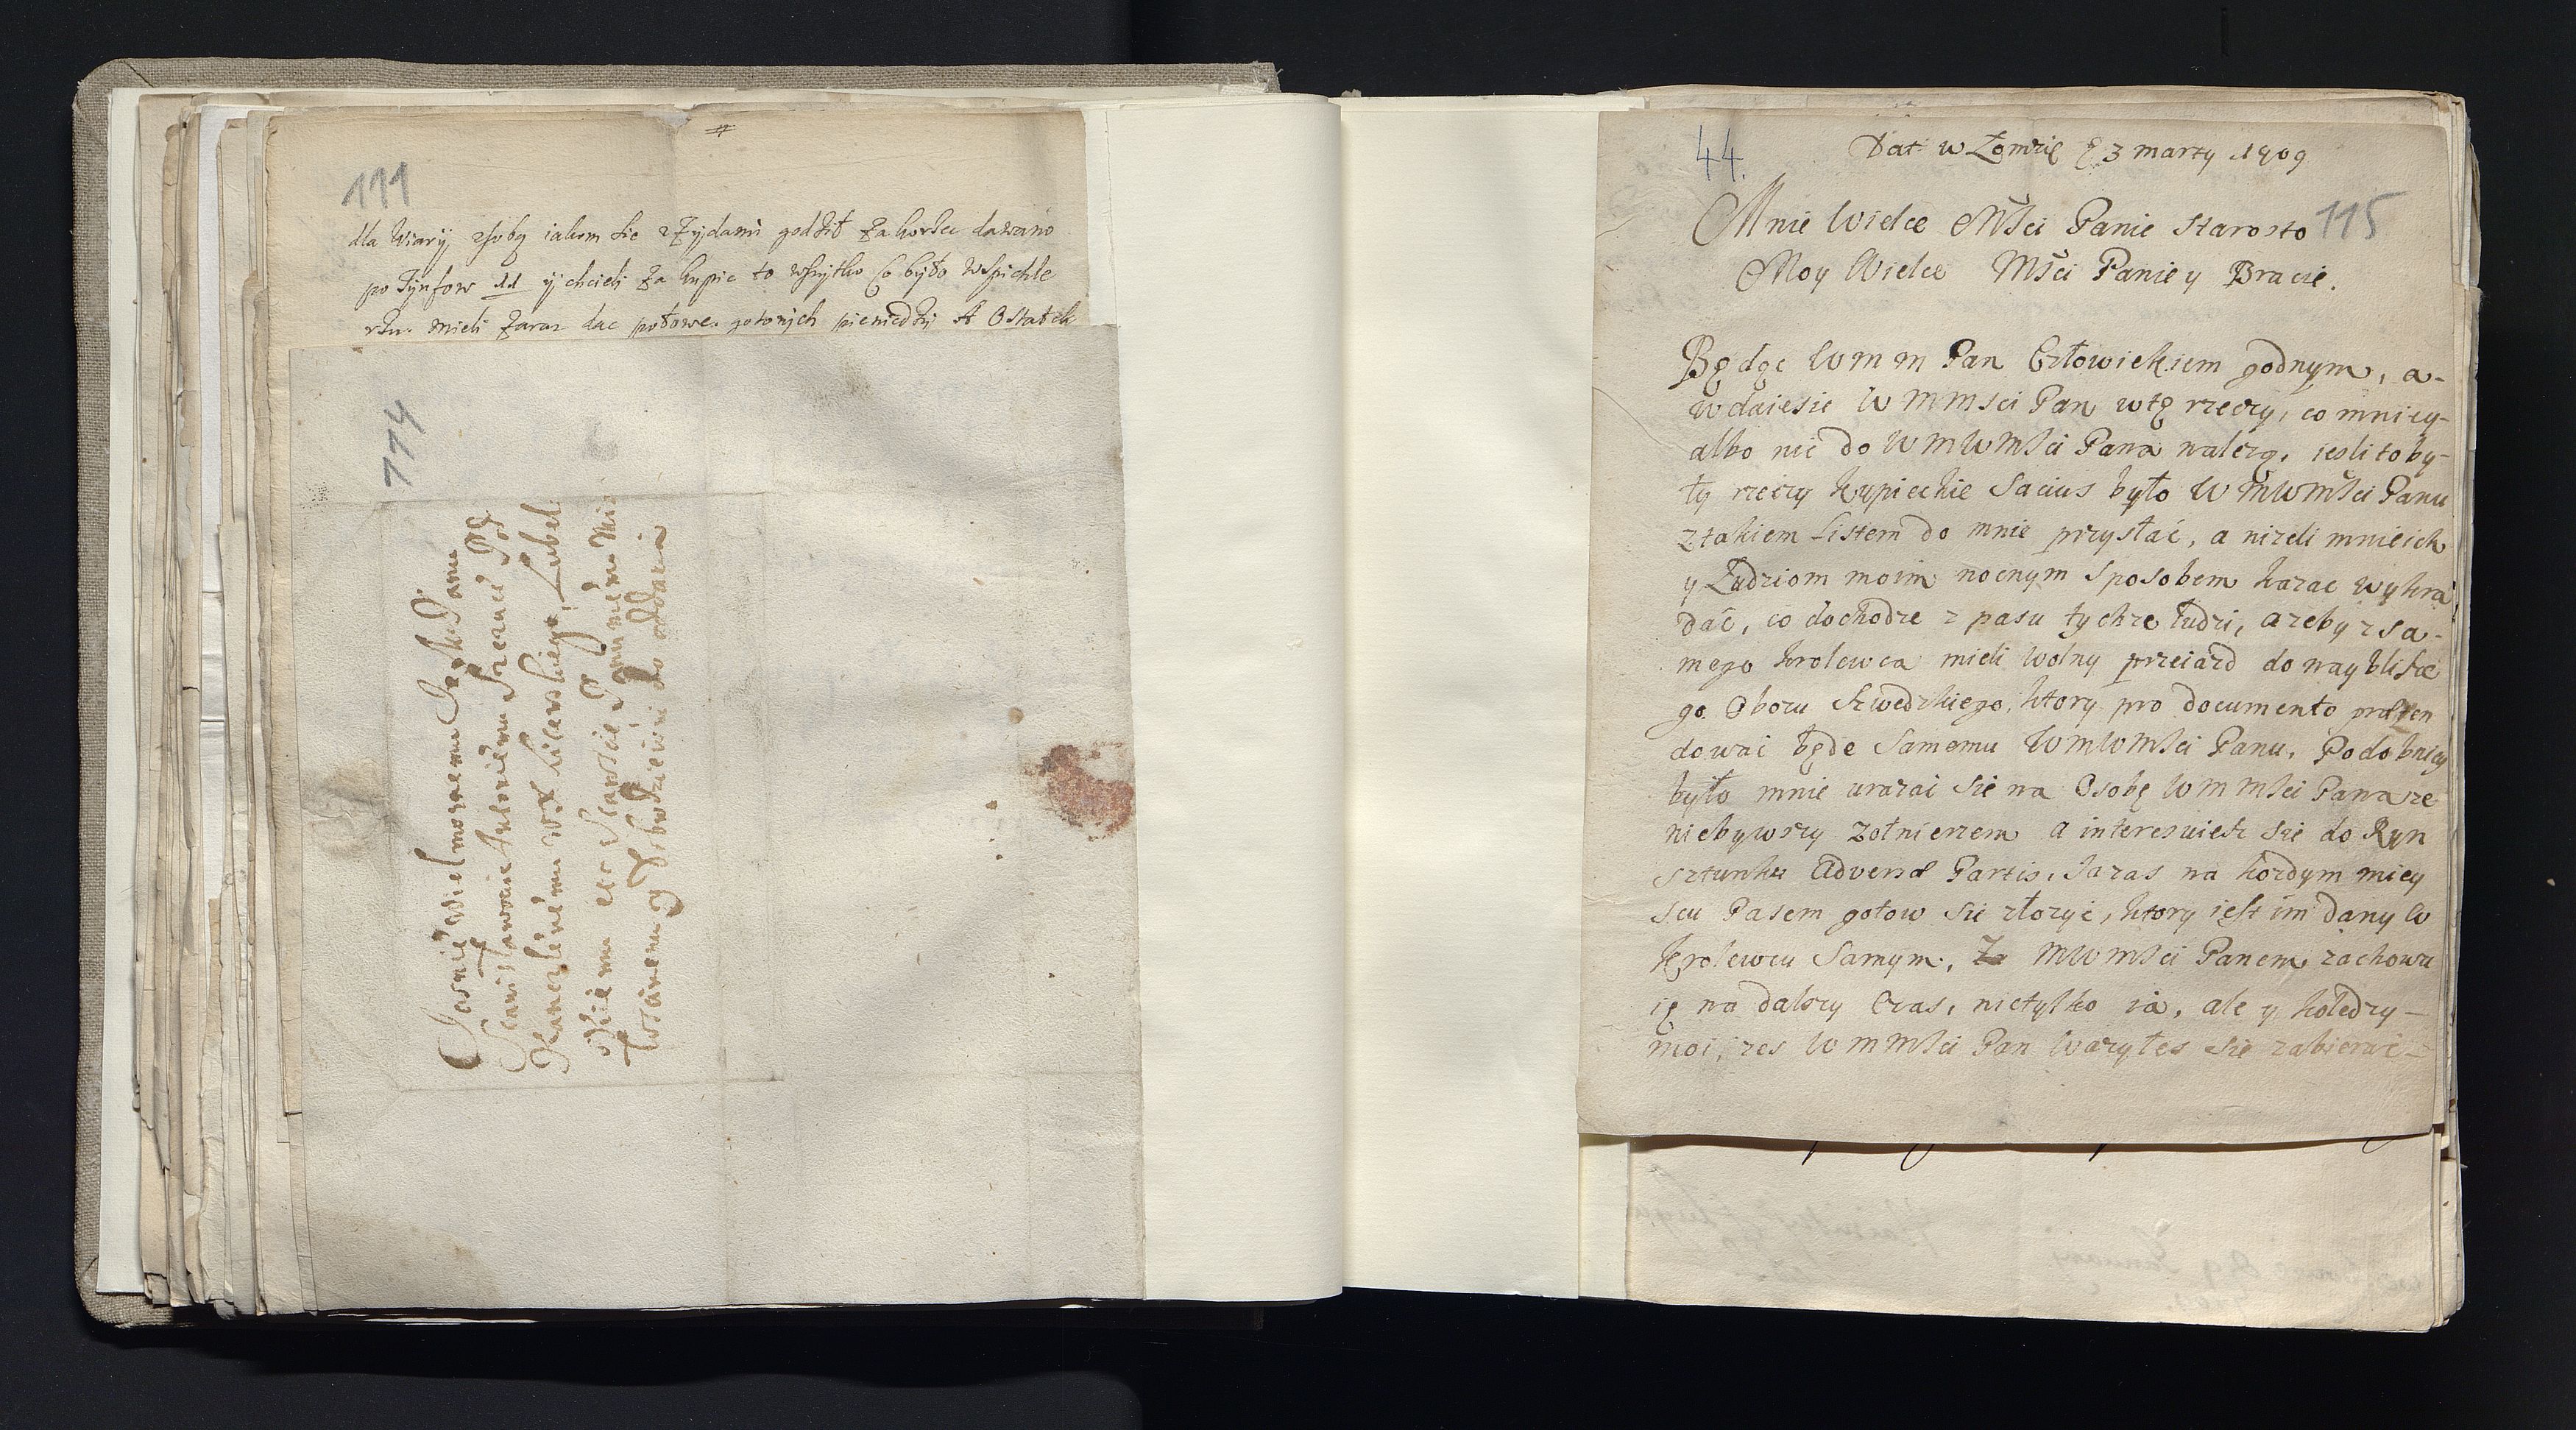 #
111
dla Wiary zsobą iakom sie zZydami godził Za korzec dawano
po Tynfow 11 y chcieli Zakupic to wszytko Co było wSpichle
rzu. mieli Zaraz dac połowe gotowych pieniedzy A Ostatek
114
Jasnie Wielmoznemu Jego Mci Panu
Stanisławowi Antoniemu Szczuce Pod
Kanclerzemu WX Litewskiego, Lubel
skiemu etc Staroscie Panu memu Mci
wemu y Dobrodzieiowi do oddania
44.
Dat w Łomzie 3 marty 1709
115
Mnie Wielce Mści Panie Starosto
Moy Wielce Mści Panie y Bracie.
Będąc WMM Pan Człowiekiem godnym, a-
wdaiesie WMMsci Pan wtę rzeczy, co mniey-
albo nic do WMWMsci Pana nalezą, iesli to by-
ły rzeczy kupieckie Sacius było WMWMsci Panu
ztakiem Listem do mnie przysłać, a nizeli mnie ich
y Ludziom moim nocnym sposobem kazac wykra
dać, co dochodze z pasu tychze ludzi, azeby z sa-
mego krolewca mieli wolny przeiazd do nayblisze
go Obozu Szwedzkiego, ktory pro documento
dowac będe Samemu WMWMsci Panu, Podobniey
było mnie urazac sie na Osobę WMMsci Pana ze
niebywszy zołnierzem a interesuiesz sie do Ryn
sztunku Adversae Partis, Ja zas na kozdym miey
scu Pasem gotow sie złozyć, ktory iest im dany w
Krolewcu Samym, Za MWMsci Panem zachowu
ię na dalszy Czas, nietylko ia, ale y koledzy-
moi, zes WMMsci Pan wazyłes sie zabierac-